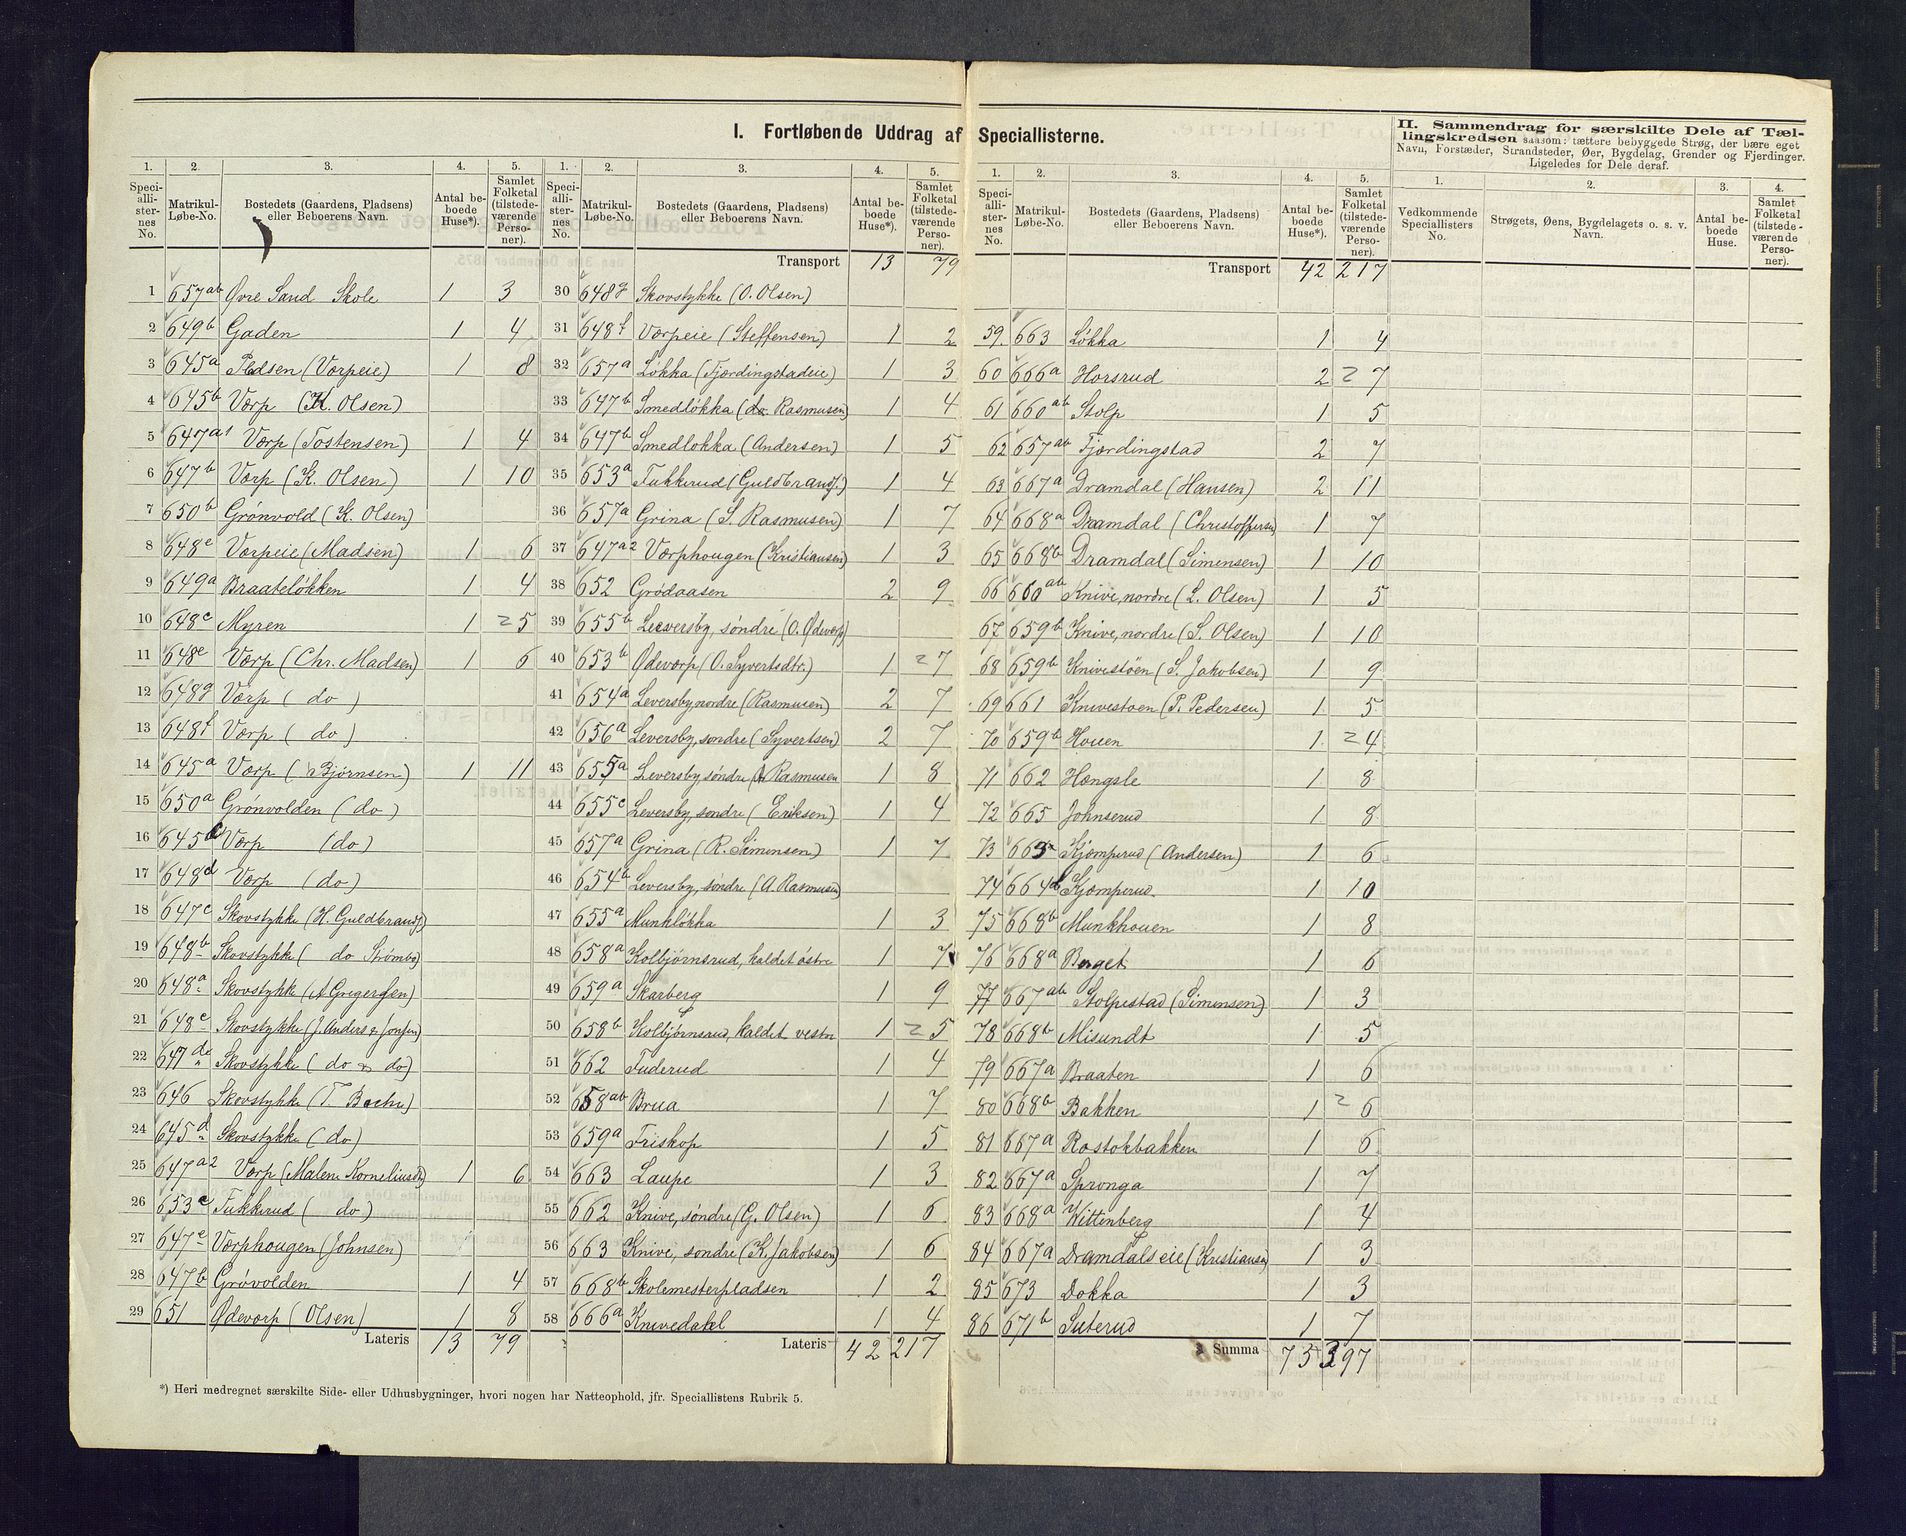 I. Fortløbende Uddrag af Speciallisterne.
II. Sammendrag for særskilte Dele af Tællingskredsen saasom: tættere bebyggede Strøg, der bære eget Navn, Forstæder, Strandsteder, Øer, Bygdelag, Grender og Fjerdinger. Ligeledes for Dele deraf.
1. 2. 3. 4. 5. 1. 2. 3. 4. 5. 1. 2. 3. 4. 5. 1. 2. 3. 4.
Speciallisternes No. Matrikul-Løbe-No. Bostedets (Gaardens, Pladsens) eller Beboerens Navn. Antal beboede Huse*). Samlet Folketal (tilstedeværende Personer).
Speciallisternes No. Matrikul-Løbe-No. Bostedets (Gaardens, Pladsens) eller Beboerens Navn. Antal beboede Huse*). Samlet Folketal (tilstedeværende Personer).
Speciallisternes No. Matrikul-Løbe-No. Bostedets (Gaardens, Pladsens) eller Beboerens Navn. Antal beboede Huse*). Samlet Folketal (tilstedeværende Personer).
Vedkommende Speciallisters No. Strøgets, Øens, Bygdelagets o. s. v. Navn. Antal beboede Huse. Samlet Folketal (tilstedeværende Personer).
1 657ab Øvre Sand Skole 1 3
2 649b Gaden 1 4
3 645a Pedsen (Værpeie) 1 8
4 645b Værp (K. Olsen)
5 647a1 Værp (Tostensen) 1 4
6 647b Værp (K. Olsen) 1 10
7 650b Grønvold (K. Olsen)
8 648e Værpeie (Madsen) 1 6
9 649a Braateløkken 1 4
10 648c Myren 1 2 5
11 648e Værp (Chr. Madsen) 1 6
12 648g Værp ( do )
13 648f Værp ( do )
14 645a Værp (Bjørnsen) 1 11
15 650a Grønvolden ( do )
16 645 Værp (do)
17 648d Værp (do)
18 647c Skovstykke (H. Guldbrands)
19 648b Skovstykke ( do Strømbo)
20 648a Skovstykke (A Gregersen)
21 648c Skovstykke (J. Anders & Jonsen)
22 647de Skovstykke ( do & do)
23 646 Skovstykke (T. Bache)
24 645d Skovstykke ( do )
25 647a2 Værp (Malene Korneliusdt) 1 6
26 653c Tukkerud ( do )
27 647e Værphougen (Johnsen)
28 647b Grøvolden 1 4
29 651 Ødevorp (Olsen) 1 8
Lateris 13 79
Transport 13 79
30 648g Skovstykke (O. Olsen)
31 648f Værpeie (Steffensen) 1 2
32 657a Løkka (Fjerdingstadeie) 1 3
33 647b Smedløkka (do Rasmusen) 1 4
34 647b Smedløkka (Andersen) 1 5
35 653a Tukkerud (Guldbrands.) 1 4
36 657a Grina (S. Rasmusen) 1 7
37 647a2 Værphougen (Kristiansen) 1 3
38 652 Grødaasen 2 9
39 655b Leversby, søndre (O. Ødevorp)
40 653b Ødevorp (O. Syvertsdtr.) 1 2 7
41 654a Leversby nordre (Rasmusen) 2 7
42 656a Leversby, søndre (Syvertsen) 2 7
43 655a Leversby søndre (Rasmusen 1 8
44 655c Leversby, søndre (Eriksen) 1 4
45 657a Grina (R. Simensen) 1 7
46 654b Leversby, søndre (A. Rasmusen)
47 655a Munkløkka 1 3
48 658a Kolbjørnsrud, kaldet østre 1 7
49 659a Skarberg 1 9
50 658b Kolbjørnsrud, kaldet vestre 1 2 5
51 662 Fuderud 1 4
52 658ab Brua 1 7
53 659a Friskop 1 5
54 663 Laupe 1 3
55 662 Knive, søndre (G. Olsen) 1 6
56 663 Knive, søndre (K. Jakobsen) 1 6
57 668b Skolemesterpladsen 1 2
58 666a Knivedahl 1 4
Lateris 42 217
Transport 42 217
59. 663 Løkka 1 4
60 666a Horsrud 2 2 7
61 660ab Stolp 1 5
62 657ab Fjerdingstad 2 7
63 667a Dramdal (Hansen) 2 11
64 668a Dramdal (Christoffersen) 1 7
65 668b Dramdal (Simensen) 1 10
66 660ab Knive, nordre (L. Olsen) 1 5
67 659b Knive, nordre (S. Olsen) 1 10
68 659b Knivestøen (S. Jakobsen) 1 9
69 661 Knivestøen (P. Pedersen) 1 5
70 659b Houen 1 2 4
71 662 Hængsle 1 8
72 665 Johnserud 1 8
73 665a Kjømperud (Andersen) 1 6
74 664b Kjømperud 1 10
75 668b Munkhouen 1 8
76 668a Berget 1 6
77 667ab Stolpestad (Simensen) 1 3
78 668b Misundt 1 5
79 667a Braaten 1 6
80 668b Bakken 1 2 6
81 667a Rostokbakken 1 6
82 667a Spronga 1 7
83 668a Wittenberg 1 4
84 667a Dramdalseie (Kristiansen) 1 3
85 673 Dokka 1 3
86 671b Suterud 1 7
Summa 75 397
*) Heri medregnet særskilte Side- eller Udhusbygninger, hvori nogen har Natteophold, jfr. Speciallistens Rubrik 5.